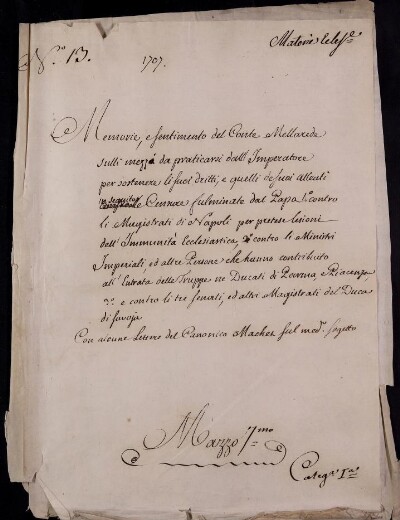 N.º 13.
1707.
Materie Eccles.e
Memorie, e sentimento del Conte Mellarede
sulli mezzi da praticarsi dall'Imperatore
per sostenere li suoi dritti, e quelli de suoi alleati
in seguito le Censure fulminate dal Papa 1.º contro
li Magistrati di Napoli per pretese lesioni
dell'Immunità Ecclesiastica, 2.º contro li Ministri
Imperiali, ed altre Persone che hanno contribuito
all'Entrata delle Truppe ne Ducati di Parma, e Piacenza
3.º e contro li tre Senati, ed altri Magistrati del Duca
di Savoja
Con alcune Lettere del Canonico Maches sul med.º sogetto
Mazzo 7.mo
Categ.a I.a